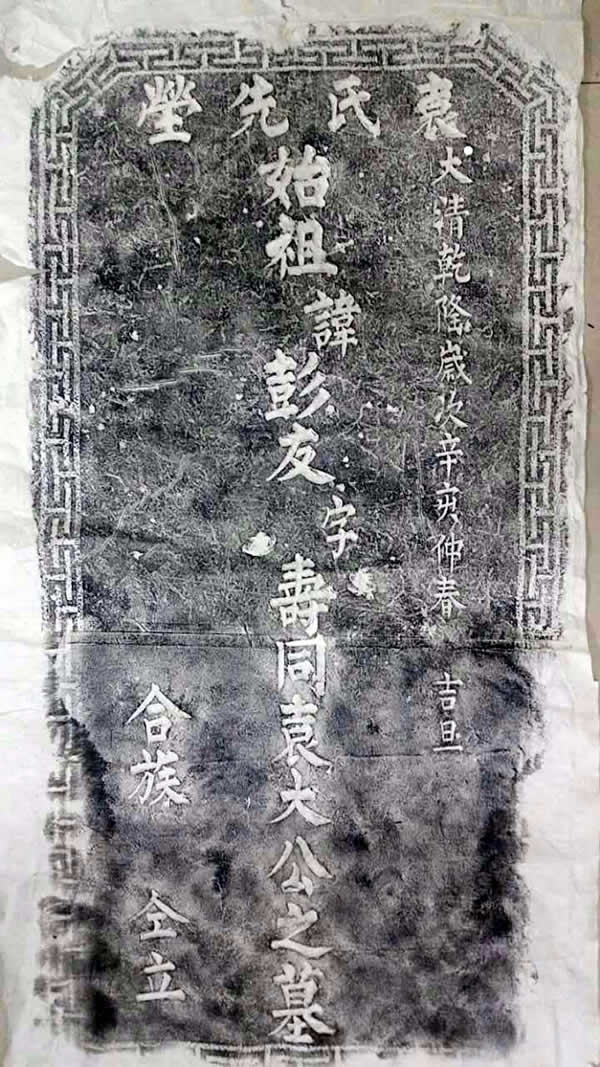 袁氏先塋
大清乾隆歲次辛亥仲春 吉旦
始祖諱彭友字壽同袁大公之墓
合族 仝立